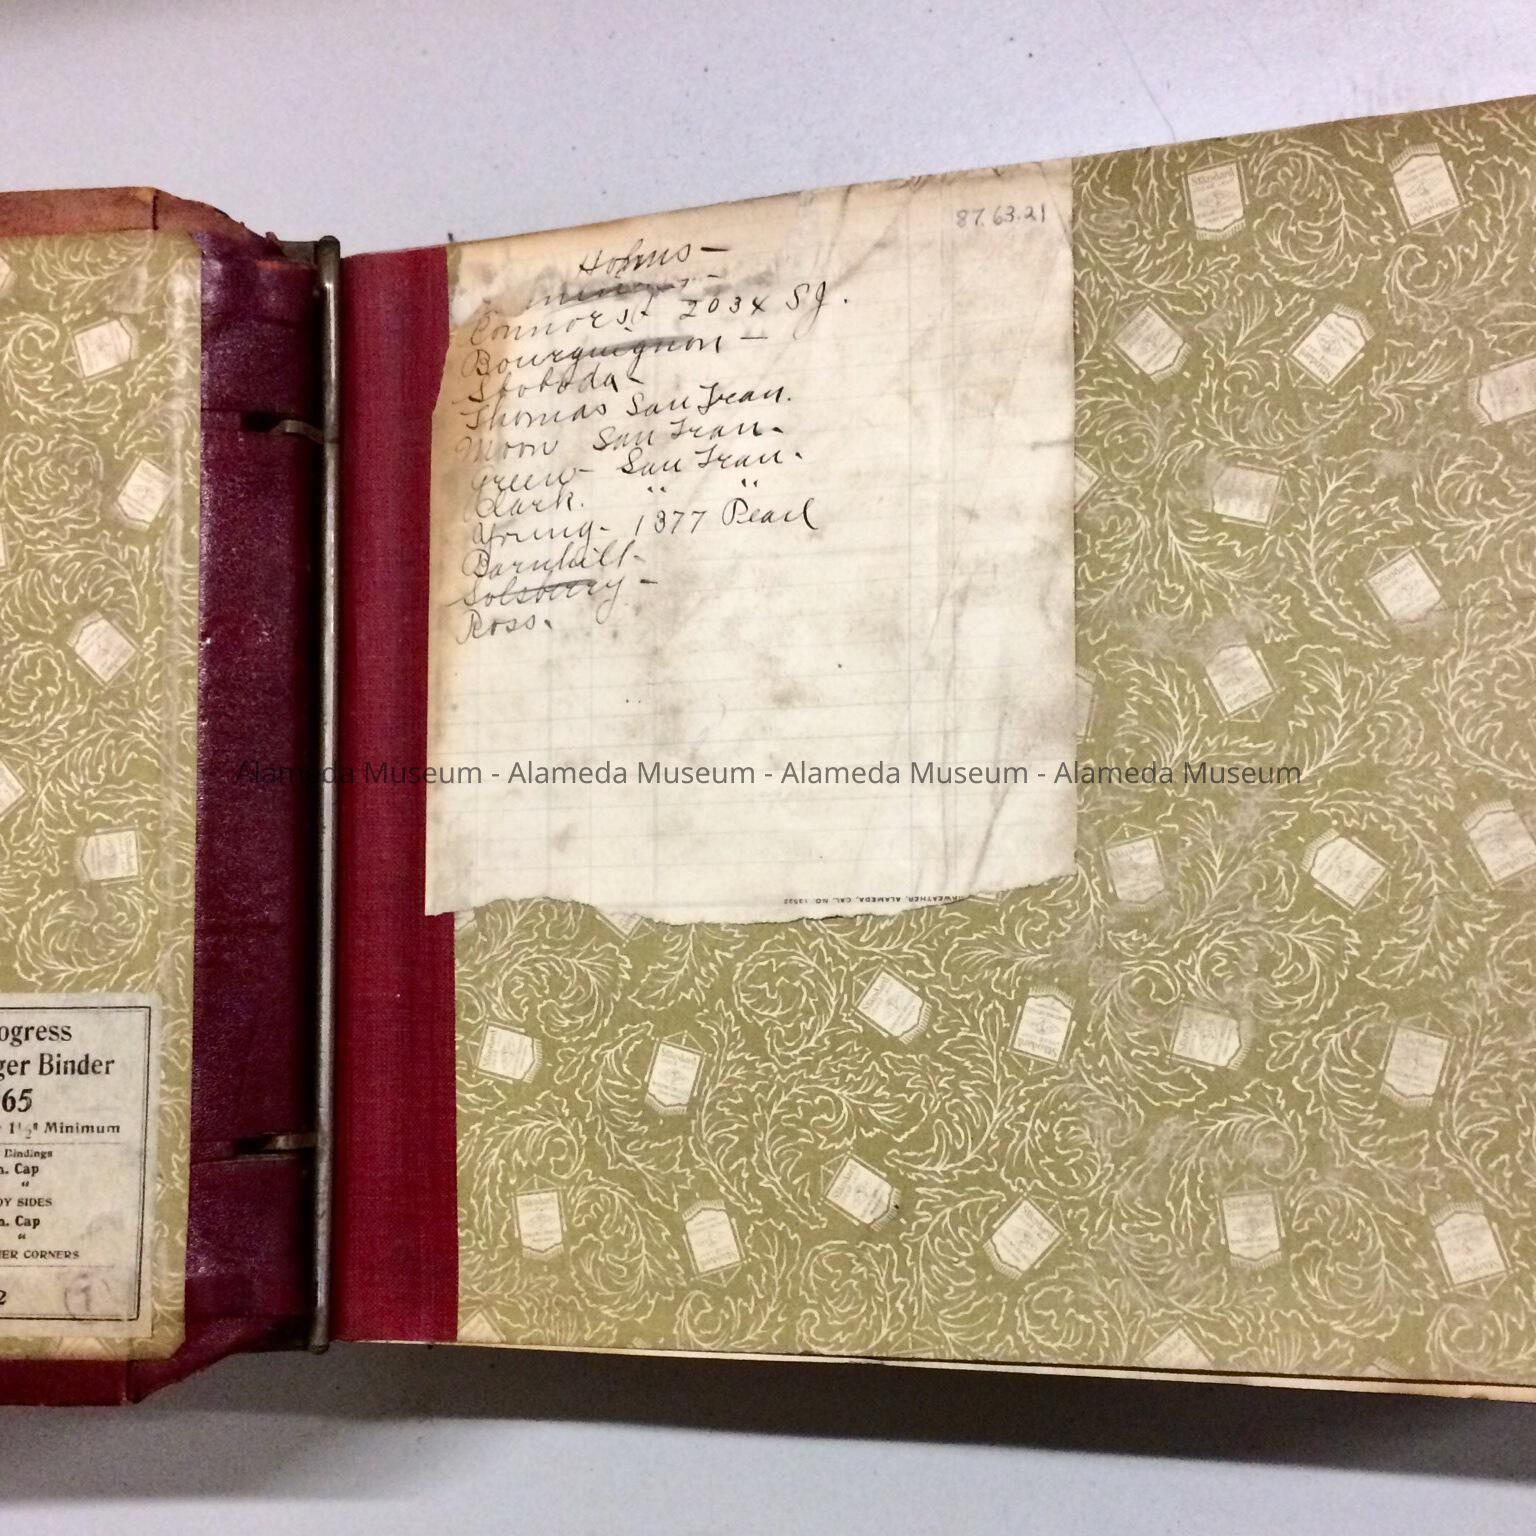 87.63.21
Connors. 2034 SJ.
Bourguignon —
Sloboda -
Thomas San Fran.
Moon San Fran.
Green - San Fran.
Clark. " "
Young - 1377 Pearl
Barnhill -
Solsberry -
Ross.
RWEATHER, ALAMEDA, CAL. NO. 13522
Alameda Museum - Alameda Museum - Alameda Museum - Alameda Museum
ogress
ger Binder
65
1½" Minimum
Bindings
n. Cap
"
DY SIDES
n. Cap
"
HER CORNERS
2
Standard
Standard
Standard